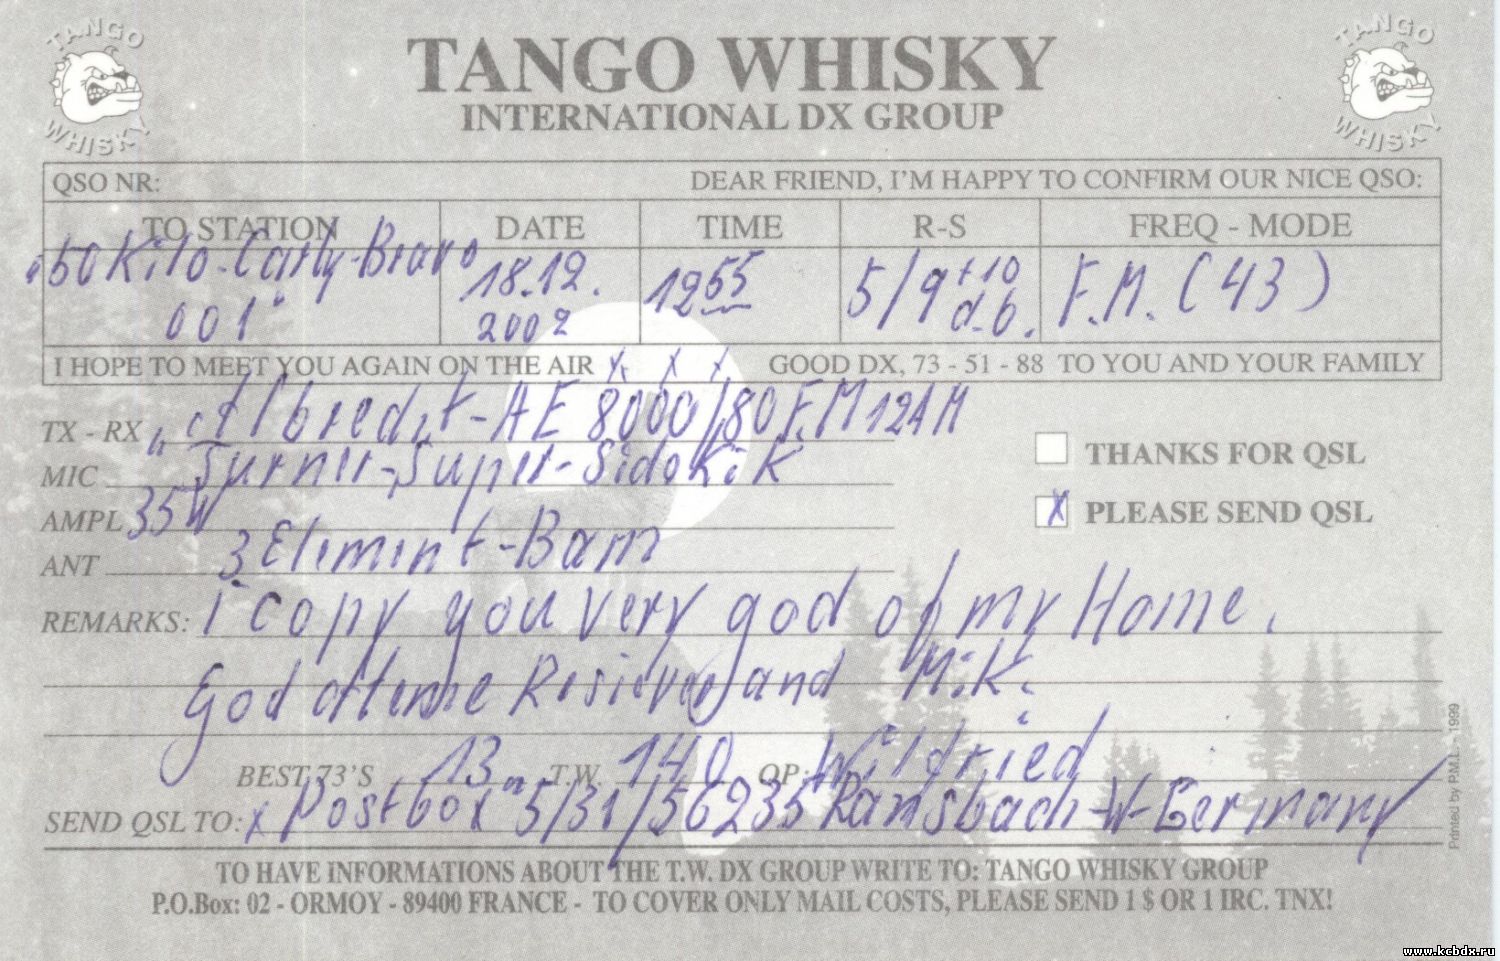 TANGO WHISKY
TANGO WHISKY
TANGO WHISKY
INTERNATIONAL DX GROUP
QSO NR: DEAR FRIEND, I'M HAPPY TO CONFIRM OUR NICE QSO:
TO STATION DATE TIME R-S FREQ - MODE
"50 Kilo-Carly-Bravo 18.12. 1255 5/9 +10 F.M. (43)
001" 2002 d.b.
I HOPE TO MEET YOU AGAIN ON THE AIR x x x GOOD DX, 73 - 51 - 88 TO YOU AND YOUR FAMILY
TX - RX "Albredit-AE 8000/80F.M12AM
MIC Turner-Super-Sidekik
THANKS FOR QSL
AMPL 35W
X PLEASE SEND QSL
ANT 3 Eliment-Bam
REMARKS: I copy you very god of my Home.
God Resiever and M.K.
BEST 73'S 13 T.W. 140 OP: Wilfried
SEND QSL TO: x Postbox 5/31/56235 Ransbach-W-Germany
Printed by P.M.L. - 1999
TO HAVE INFORMATIONS ABOUT THE T.W. DX GROUP WRITE TO: TANGO WHISKY GROUP
P.O.Box: 02 - ORMOY - 89400 FRANCE - TO COVER ONLY MAIL COSTS, PLEASE SEND 1 $ OR 1 IRC. TNX!
www.kcbdx.ru